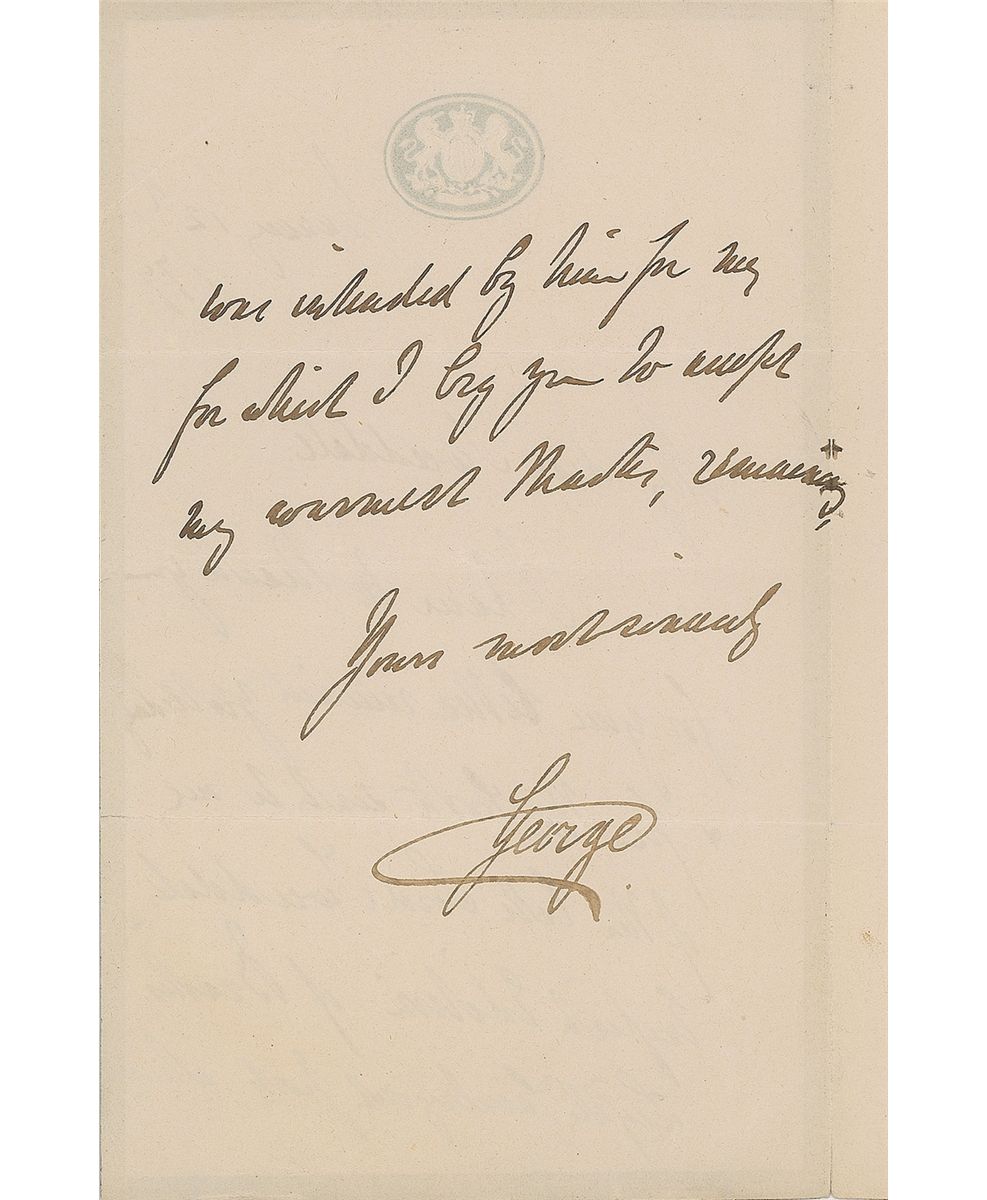 was intended by him for my
for which I beg you to accept
my warmest thanks, remaining,
Yours most sincerely
George